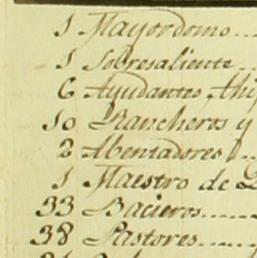 1 Mayordomo....
1 Sobresaliente....
6 Ayudantes,
10 Rancheros y
2 Abentadores
1 Maestro de
33 Bacieros.......
38 Pastores.......